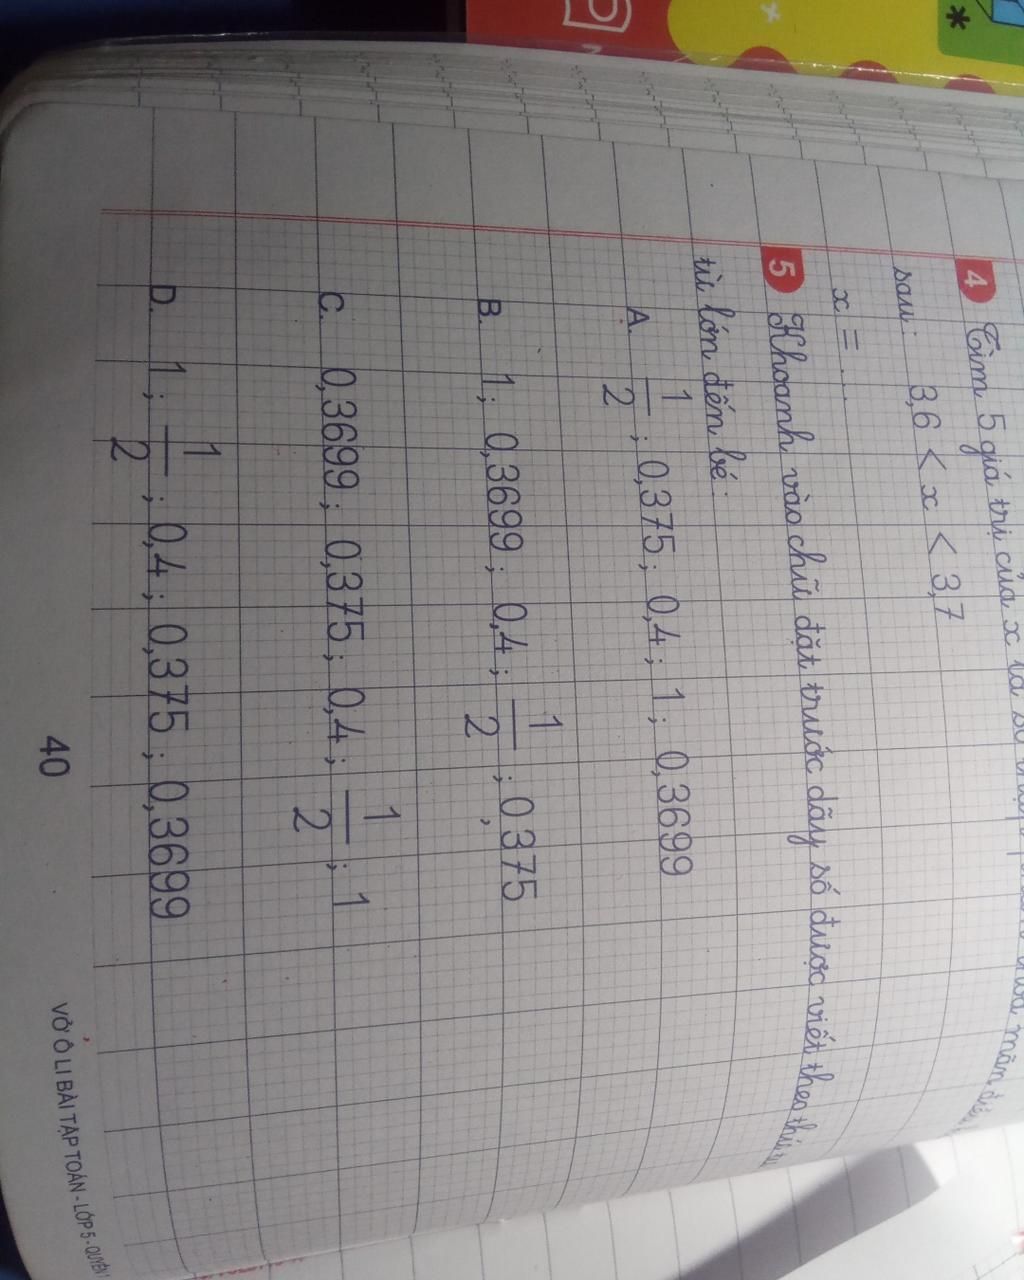 4 Tìm 5 giá trị của x là số thập phân thỏa mãn điều
sau: 3,6 < x < 3,7
x = ...
5 Khoanh vào chữ đặt trước dãy số được viết theo thứ tự
từ lớn đến bé:
A. 1/2 ; 0,375 ; 0,4 ; 1 ; 0,3699
B. 1 ; 0,3699 ; 0,4 ; 1/2 ; 0,375
C. 0,3699 ; 0,375 ; 0,4 ; 1/2 ; 1
D. 1 ; 1/2 ; 0,4 ; 0,375 ; 0,3699
40
VỞ Ô LI BÀI TẬP TOÁN - LỚP 5 - QUYỂN